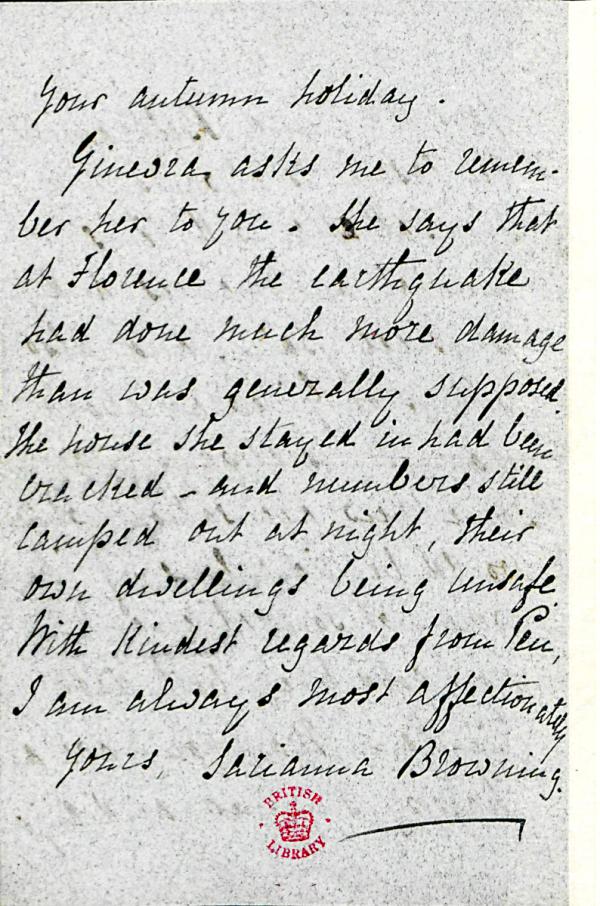 your autumn holiday.
Ginevra asks me to remem-
ber her to you. She says that
at Florence the earthquake
had done much more damage
than was generally supposed.
The house she stayed in had been
cracked - and numbers still
camped out at night, their
own dwellings being unsafe.
With kindest regards from Pen,
I am always most affectionately
Yours, Sarianna Browning.
BRITISH
LIBRARY